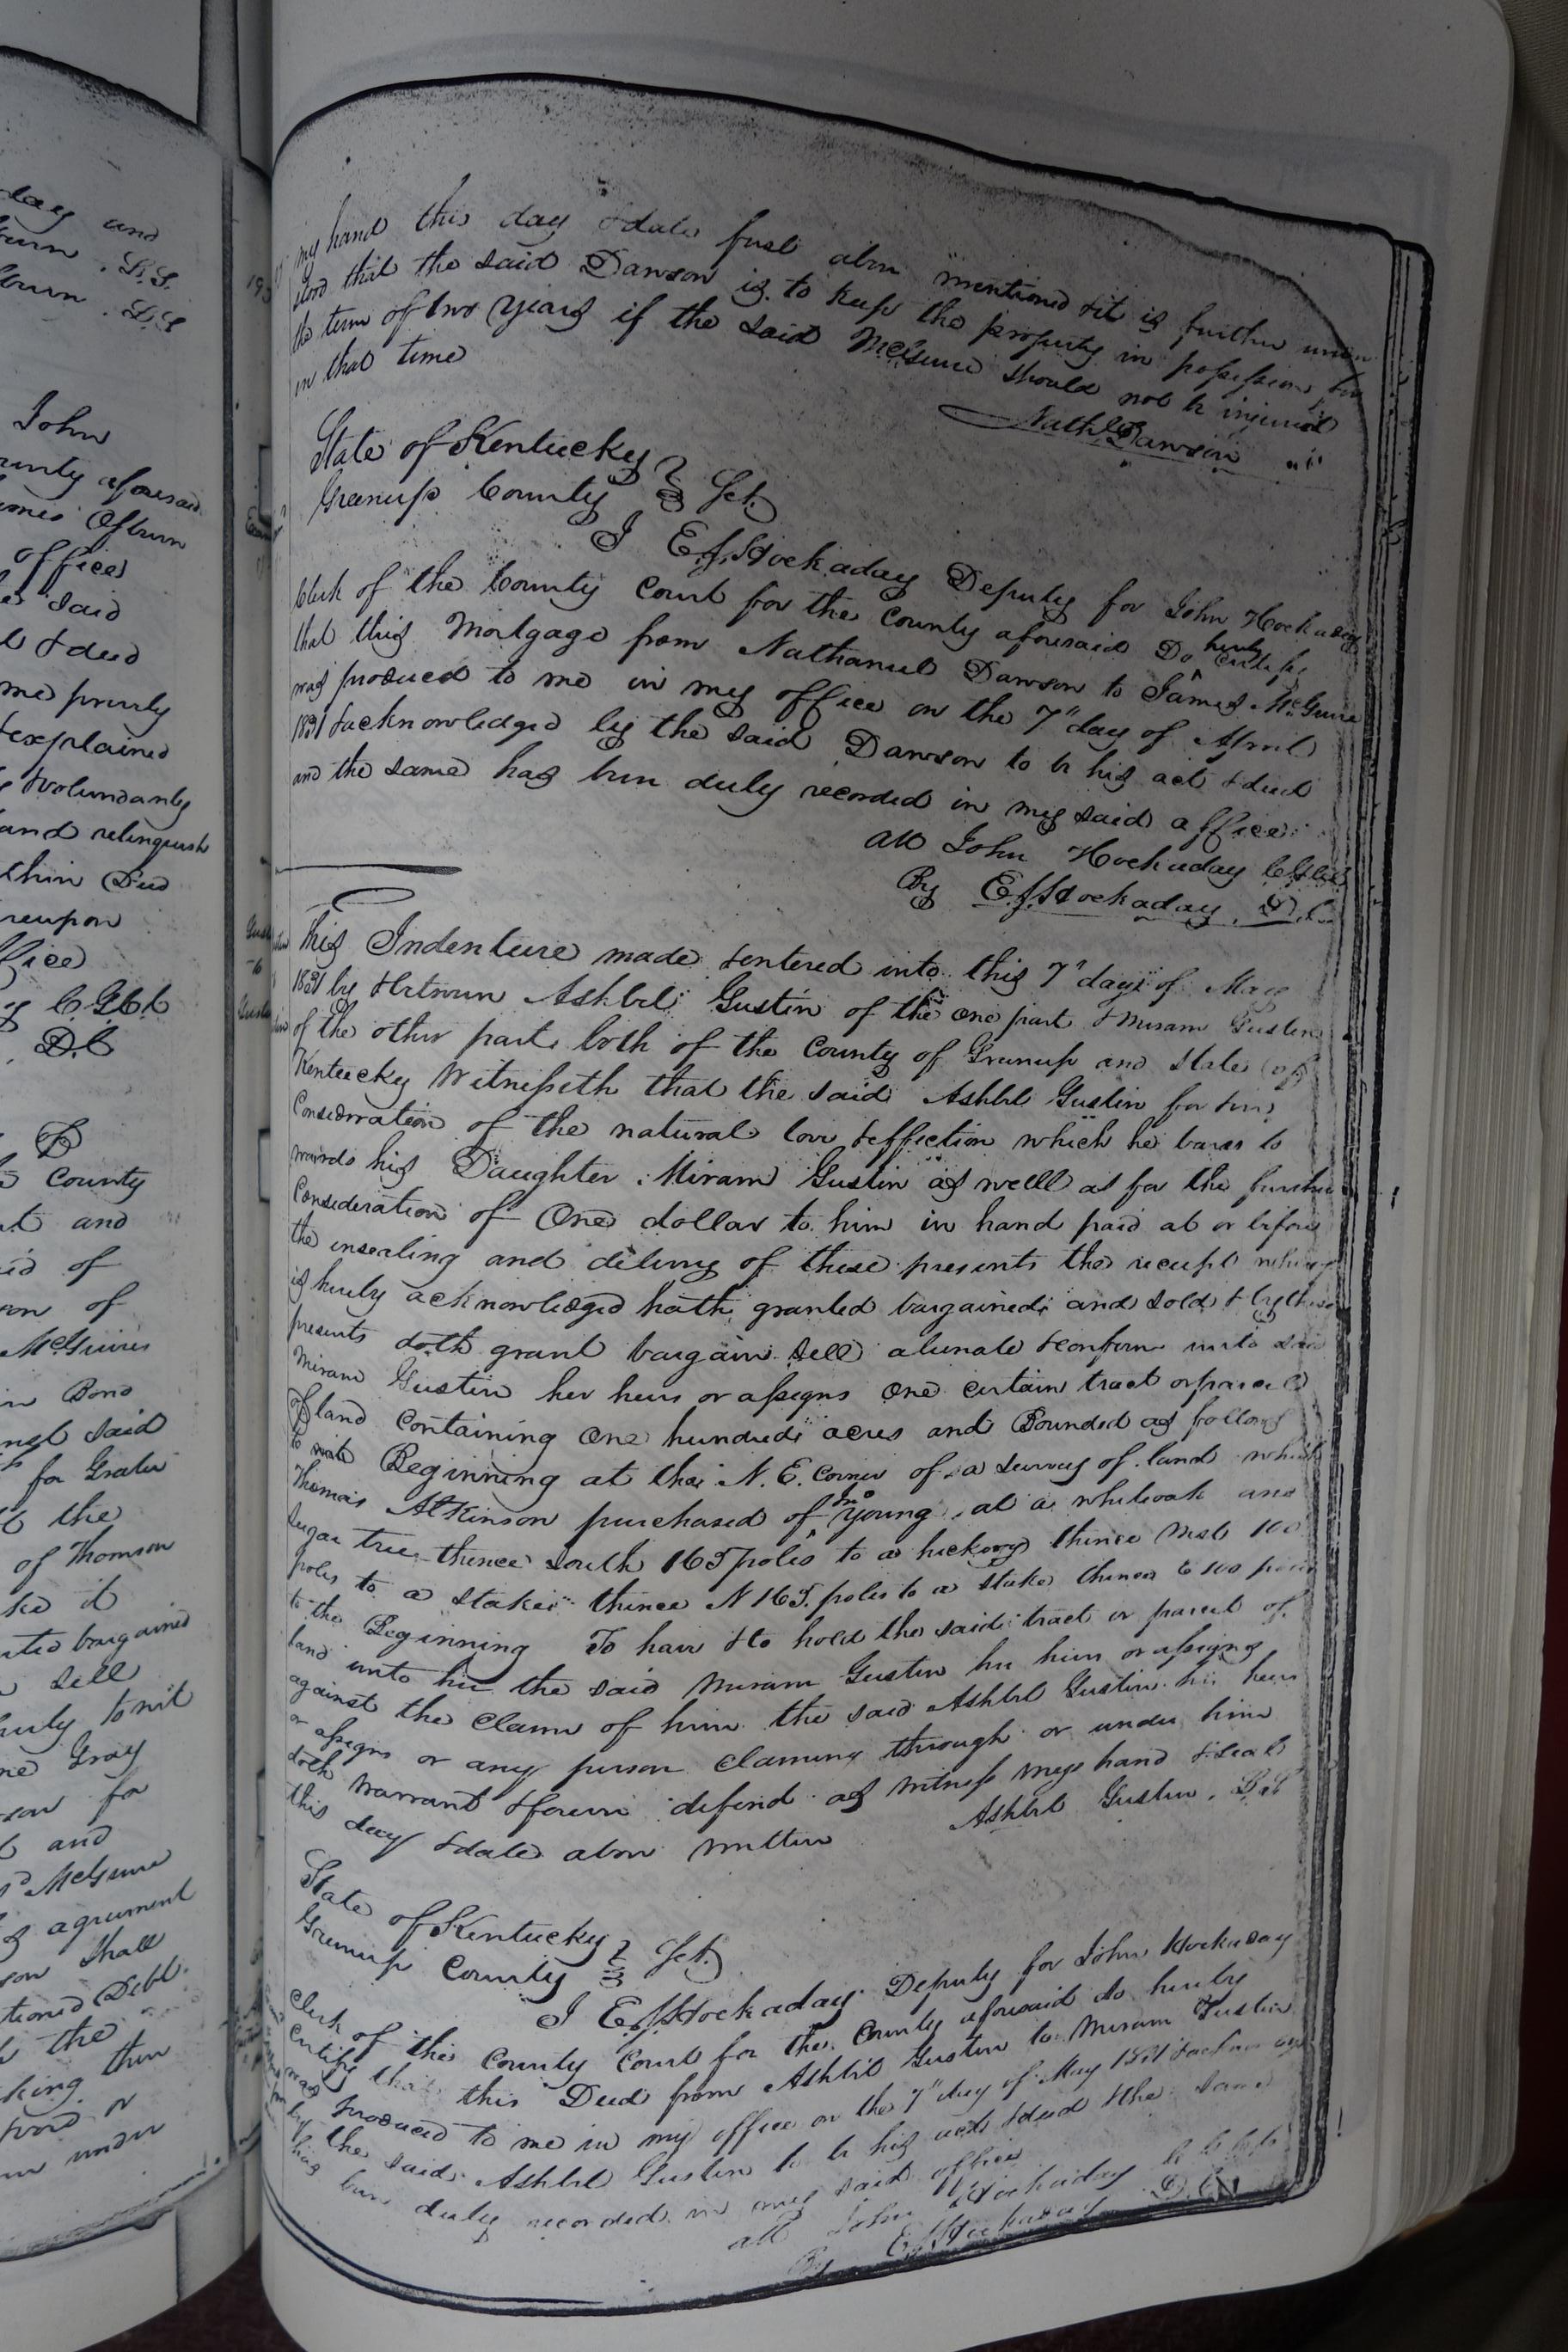 day and
L.S.
L.S
John
county aforesaid
Ofburn
office
said
& deed
me privily
& explained
voluntarily
and relinquish
within Deed
reupon
office
C.G.C.C
D.C
County
and
of
of
McGuires
in Bond
said
for Grater
the
of Thomson
it
bargained
sell
towit
Gray
for
and
McGuire
agreement
shall
Debt
the
then
or
under
my hand this day & date first above mentioned & it is further under
stood that the said Dawson is to keep the property in possession for
the term of two years if the said McGuire should not be injured
in that time
Nathl Dawson
State of Kentucky
Greenup County } Sct.
I E.f. Hockaday Deputy for John Hockaday
Clerk of the County Court for the County aforesaid Do hereby certify
that this Mortgage from Nathaniel Dawson to James McGuire
was produced to me in my office on the 7" day of April
1831 & acknowledged by the said Dawson to be his act & deed
and the same has been duly recorded in my said office
att John Hockaday
By E.f. Hockaday D.C.
This Indenture made & entered into this 7" day of May
1831 by & between Ashbel Gustin of the one part & Miram Gustin
of the other part both of the County of Greenup and State of
Kentucky Witnesseth that the said Ashbel Gustin for & in
Consideration of the natural love & effection which he bares to
wards his Daughter Miram Gustin as well as for the further
Consideration of One dollar to him in hand paid at or before
the insealing and delivery of these presents the receipt whereof
is hereby acknowledged hath granted bargained and sold & by these
presents doth grant bargain sell alienate & confirm unto said
Miram Gustin her heirs or assigns one certain tract or parcel
of land containing one hundred acres and Bounded as follows
to wit Beginning at the N.E. corner of a survey of land which
Thomas Atkinson purchased of Jno Young at a whiteoak and
sugar tree thence South 165 poles to a hickory thence West 100
poles to a stake thence N 165 poles to a stake thence E 100 poles
to the Beginning To have & to hold the said tract or parcel of
land unto her the said Miram Gustin her heirs or assigns
against the claim of him the said Ashbel Gustin his heirs
or assigns or any person claiming through or under him
doth warrant & forever defend as witness my hand & seal
this day & date above written Ashbel Gustin L.S
State of Kentucky
Greenup County } Sct.
I E.f. Hockaday Deputy for John Hockaday
Clerk of the County Court for the County aforesaid do hereby
certify that this Deed from Ashbel Gustin to Miram Gustin
was produced to me in my office on the 7" day of May 1831 & acknowledged
by the said Ashbel Gustin to be his act & deed & the same
has been duly recorded in my said office
att John Hockaday
By E.f. Hockaday D.C.